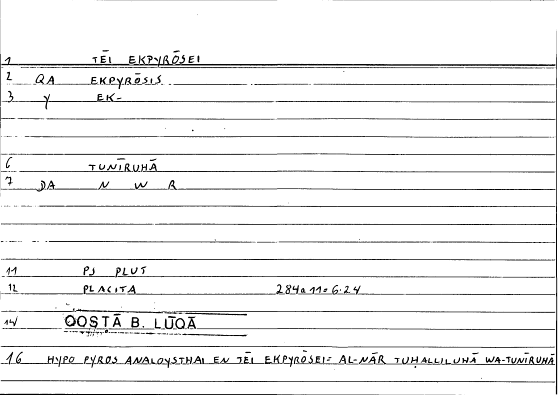 1 TĒI EKPYRŌSEI
2 QA EKPYRŌSIS
3 Y EK-
6 TUNĪRUHĀ
7 DA N W R
11 PJ PLUT
12 PLACITA 284a11=6.24
14 QOSṬĀ B. LŪQĀ
16 HYPO PYROS ANALOYSTHAI EN TĒI EKPYRŌSEI= AL-NĀR TUḤALLILUHĀ WA-TUNĪRUHĀ